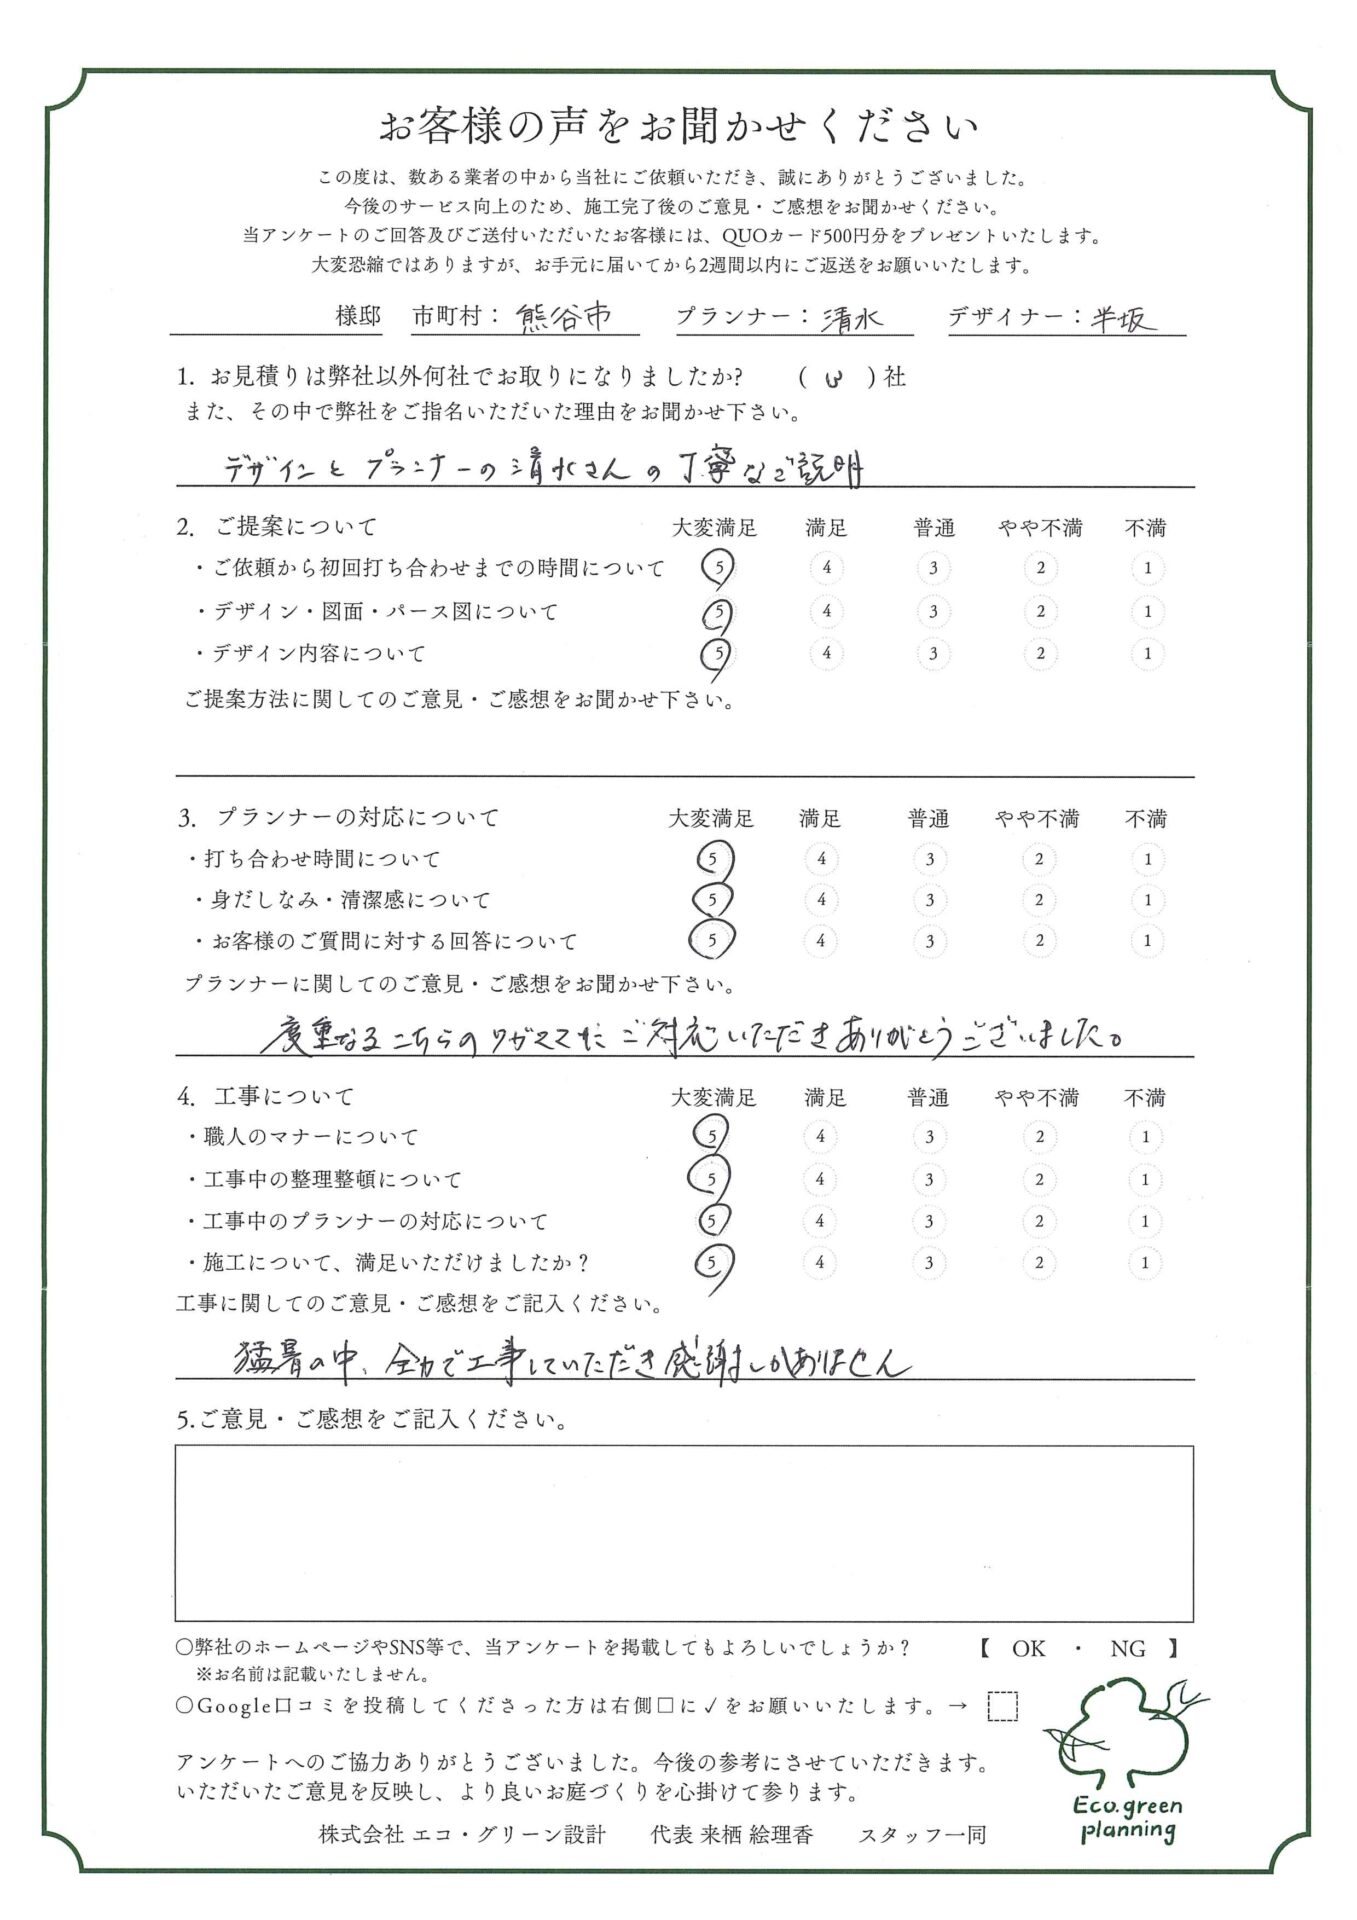 お客様の声をお聞かせください
この度は、数ある業者の中から当社にご依頼いただき、誠にありがとうございました。
今後のサービス向上のため、施工完了後のご意見・ご感想をお聞かせください。
当アンケートのご回答及びご送付いただいたお客様には、QUOカード500円分をプレゼントいたします。
大変恐縮ではありますが、お手元に届いてから2週間以内にご返送をお願いいたします。
様邸 市町村：熊谷市 プランナー：清水 デザイナー：半坂
1. お見積りは弊社以外何社でお取りになりましたか? ( ) 社
また、その中で弊社をご指名いただいた理由をお聞かせ下さい。
デザインとプランナーの清水さんの丁寧なご説明
2. ご提案について 大変満足 満足 普通 やや不満 不満
・ご依頼から初回打ち合わせまでの時間について 5 4 3 2 1
・デザイン・図面・パース図について 5 4 3 2 1
・デザイン内容について 5 4 3 2 1
ご提案方法に関してのご意見・ご感想をお聞かせ下さい。
3. プランナーの対応について 大変満足 満足 普通 やや不満 不満
・打ち合わせ時間について 5 4 3 2 1
・身だしなみ・清潔感について 5 4 3 2 1
・お客様のご質問に対する回答について 5 4 3 2 1
プランナーに関してのご意見・ご感想をお聞かせ下さい。
度重なるこちらのワガママにご対応いただきありがとうございました。
4. 工事について 大変満足 満足 普通 やや不満 不満
・職人のマナーについて 5 4 3 2 1
・工事中の整理整頓について 5 4 3 2 1
・工事中のプランナーの対応について 5 4 3 2 1
・施工について、満足いただけましたか？ 5 4 3 2 1
工事に関してのご意見・ご感想をご記入ください。
猛暑の中、全力で工事していただき感謝しかありません
5.ご意見・ご感想をご記入ください。
〇弊社のホームページやSNS等で、当アンケートを掲載してもよろしいでしょうか？ 【 OK ・ NG 】
※お名前は記載いたしません。
〇Google口コミを投稿してくださった方は右側□に✓をお願いいたします。→
アンケートへのご協力ありがとうございました。今後の参考にさせていただきます。
いただいたご意見を反映し、より良いお庭づくりを心掛けて参ります。
Eco.green
planning
株式会社 エコ・グリーン設計 代表 来栖 絵理香 スタッフ一同